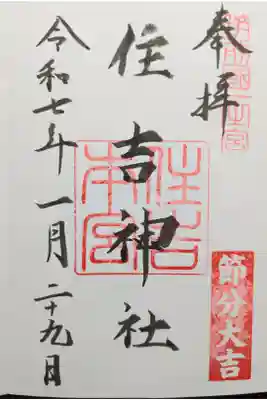 奉拝
住吉神社
住吉
本宮
節分大吉
令和七年一月二十九日